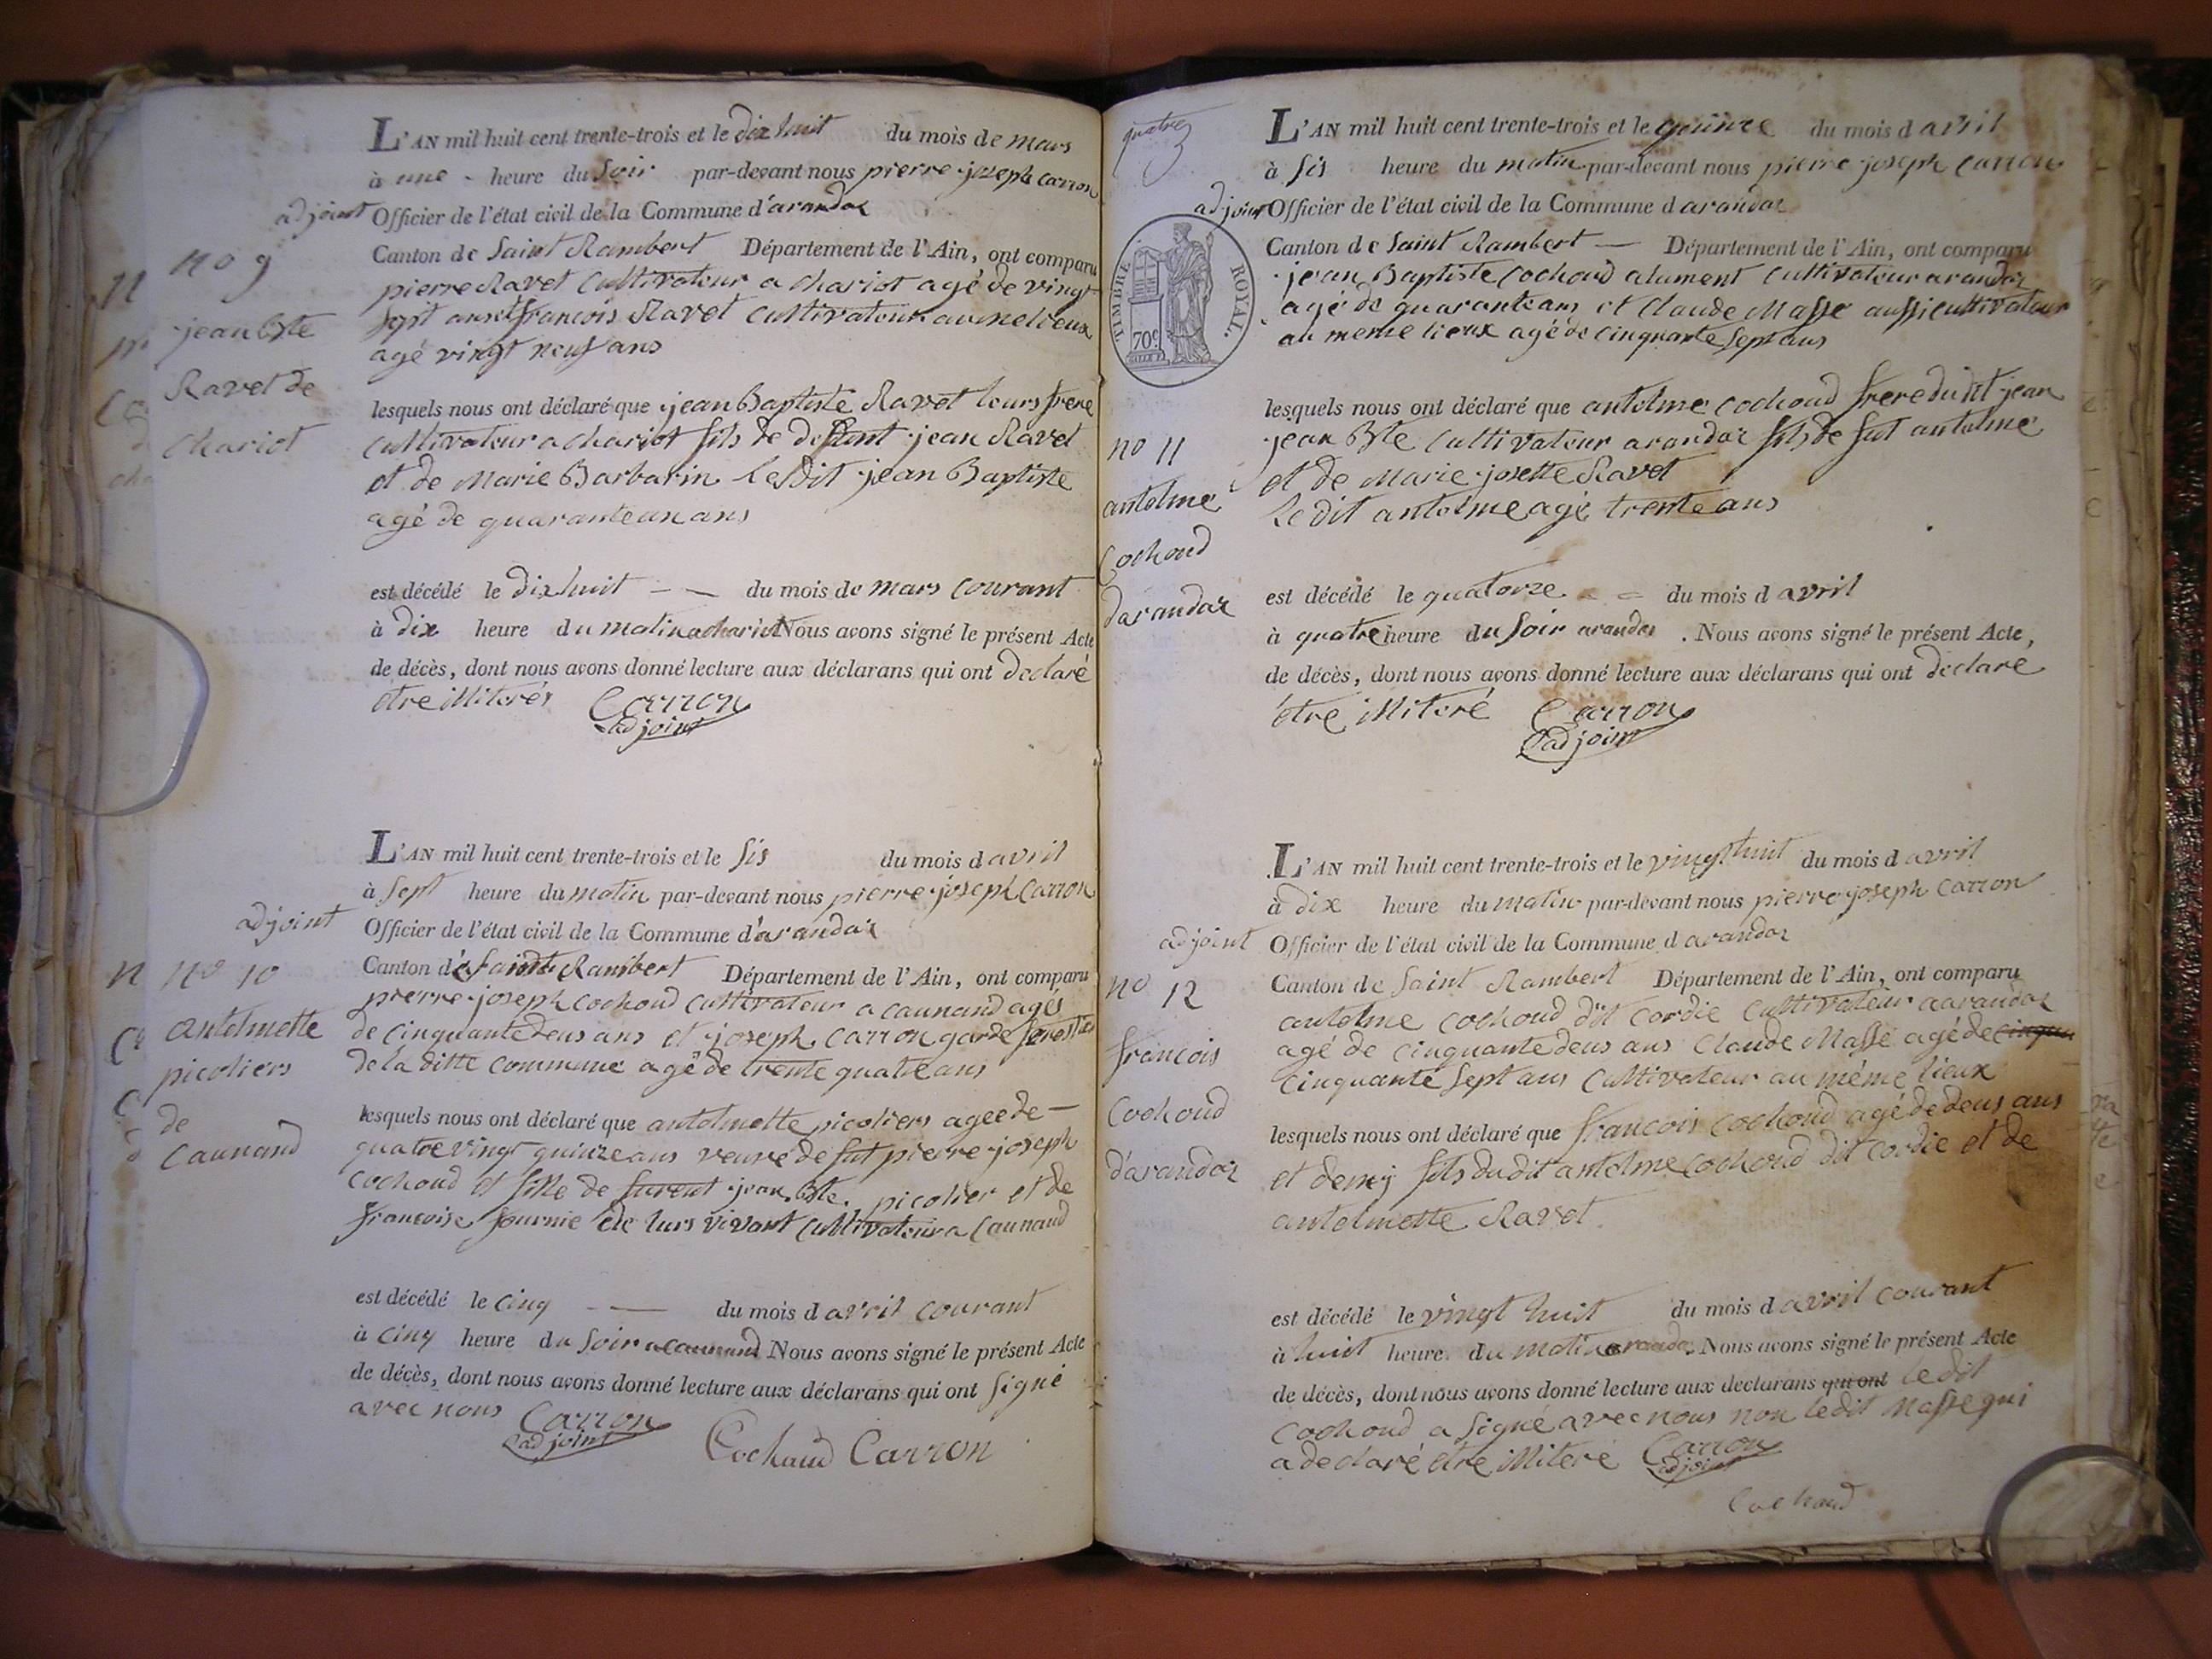 L'AN mil huit cent trente-trois et le dix huit du mois de mars
à une heure du soir par-devant nous pierre joseph Carron
adjoint Officier de l'état civil de la Commune d'arandaz
Canton de Saint Rambert Département de l'Ain, ont comparu
pierre Ravet Cultivateur a Chariot agé de vingt
sept ans et francois Ravet Cultivateur au lieux
agé vingt neuf ans
no 9
jean Bste
Ravet de
Chariot
lesquels nous ont déclaré que jean Baptiste Ravet leurs frere
Cultivateur a chariot fils de deffunt jean Ravet
et de Marie Barbarin Ledit jean Baptiste
agé de quarante un ans
est décédé le dix huit du mois de mars Courant
à dix heure du matin a chariot Nous avons signé le présent Acte
de décès, dont nous avons donné lecture aux déclarans qui ont declaré
etre illiterés Carron
adjoint
L'AN mil huit cent trente-trois et le sis du mois d avril
à sept heure du matin par-devant nous pierre joseph Carron
adjoint Officier de l'état civil de la Commune d'arandaz
Canton de Saint Rambert Département de l'Ain, ont comparu
pierre joseph cochoud cultivateur a caunand agés
de cinquante deus ans et joseph Carron garde forestier
de la ditte commune agé de trente quatre ans
no 10
antelmette
picoliers
de
Caunand
lesquels nous ont déclaré que antelmette picoliers agee de
quatre vingt quinze ans veuve de fut pierre joseph
Cochoud et fille de furent jean Bte. picolier et de
francoise fournie de lurs vivant Cultivateur a Caunand
est décédé le cinq du mois d avril courant
à cinq heure du soir a caunand Nous avons signé le présent Acte
de décès, dont nous avons donné lecture aux déclarans qui ont signé
avec nous Carron
adjoint
Cochaud Carron
quatre
L'AN mil huit cent trente-trois et le quinze du mois d avril
à sis heure du matin par-devant nous pierre joseph Carron
adjoint Officier de l'état civil de la Commune d arandaz
TIMBRE ROYAL.
70c
Canton de Saint Rambert Département de l'Ain, ont comparu
jean Baptiste Cochoud alument Cultivateur arandaz
agé de quarante ans et Claude Masse aussi cultivateur
au meme lieux agé de cinquante sept ans
no 11
antelme
Cochoud
darandaz
lesquels nous ont déclaré que antelme cochoud frere dudit jean
jean Bste Cultivateur arandaz fils de fut antelme
et de Marie josette Ravet
Le dit antelme agé trente ans
est décédé le quatorze du mois d avril
à quatre heure du soir arandaz. Nous avons signé le présent Acte,
de décès, dont nous avons donné lecture aux déclarans qui ont declare
être illiteré Carron
adjoint
L'AN mil huit cent trente-trois et le vingt huit du mois d avril
à dix heure du matin par-devant nous pierre joseph Carron
adjoint Officier de l'état civil de la Commune d arandaz
Canton de Saint Rambert Département de l'Ain, ont comparu
antelme cochoud dit cordie Cultivateur a arandaz
agé de cinquante deus ans Claude Masse agé de
cinquante sept ans Cultivateur au même lieux
no 12
francois
Cochoud
d'arandaz
lesquels nous ont déclaré que francois cochoud agé de deus ans
et demj fils dudit antelme cochoud dit cordie et de
antelmette Ravet
est décédé le vingt huit du mois d avril courant
à huit heure du matin arandaz. Nous avons signé le présent Acte
de décès, dont nous avons donné lecture aux declarans qui ont le dit
Cochoud a signé avec nous non ledit Masse qui
a declaré etre illiteré Carron
adjoint
Cochoud